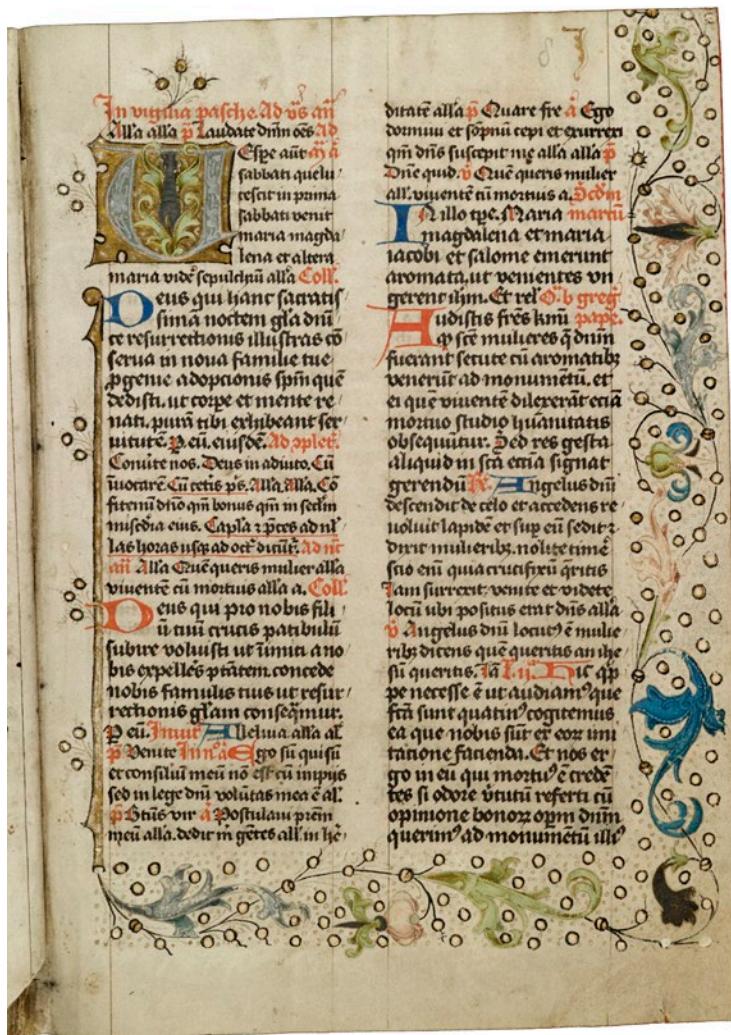 In vigilia pasche. Ad vs̄ an̄
Alla alla p̄ Laudate dn̄m oēs Ad
Vespe aūt m̄ ā
sabbati que lu
cescit in prima
sabbati venit
maria magda
lena et altera
maria videˀ sepulchrū alla Coll.
Deus qui hanc sacratis
simā noctem gl̄a dnī
ce resurrectionis illustras cō
serua in noua familie tue
ꝓgenie adopcionis spm̄ quē
dedisti. ut corꝑe et mente re
nati. purā tibi exhibeant ser
uitutē. P eū. eiusdē. Ad ꝯplet.
Conuˀte nos. Deus in adiuto. Cū
īuocarē. Cū cetis ps̄. Alla. Alla. Cō
fitemī dn̄o qm̄ bonus qm̄ in sc̄lm
mis̄cdia eius. Capl̄a ⁊ p̄ces ad nl̄
las horas usqȝ ad oct̄ dicūt̄. Ad nc̄t
an̄ Alla Quē queris mulier alla
viuentē cū mortuis alla a. Coll.
Deus qui pro nobis fili
ū tuū crucis patibulū
subire voluisti ut īimici a no
bis expelles p̄tātem. concede
nobis famulis tuis ut resur
rectionis gl̄am conseq̄mur.
P eū. Inuit̄ Alleluia alla al.
p̄ Venite In nͦ ā Ego sū qui sū
et consiliū meū nō est cū impijs
sed in lege dnī volūtas mea ē al.
p̄ Btūs vir ā Postulaui prēm
meū alla. dedit m̄ gētes all. in hēˀ
ditatē alla p̄ Quare fre ā Ego
dormiui et sopnū cepi et exurrexi
qm̄ dn̄s suscepit me alla alla p̄
Dn̄e quid. v̄ Quē queris mulier
all. viuentē cū mortuis a. Scd̄m
In illo tꝑe. Maria marcū
magdalena et maria
iacobi et salome emerunt
aromata. ut venientes vn
gerent ihm̄. Et rel̄ O. b greḡ
Audistis frēs km̄i pape.
qꝫ sc̄e mulieres q̄ dn̄m
fuerant secute cū aromatibȝ
venerūt ad monumētū. et
ei que viuentē dilexerāt eciā
mortuo studio hūanitatis
obsequūtur. Sed res gesta
aliquid in sc̄a ecc̄ia signat
gerendū R̄. Angelus dnī
descendit de celo et accedens re
uoluit lapidē et suꝑ eū sedit ⁊
dixit mulieribȝ. nolite timēˀ
scio enī quia crucifixū q̄ritis
Iam surrexit. venite et videte
locū ubi positus erat dn̄s alla
v̄ Angelus dnī locutꝰ ē mulie
ribȝ dicens quē queritis an ihe
sū queritis. Iā L. ij.ͣ Hic qꝑ
pe necesse ē ut audiamꝰ que
fc̄a sunt quatinꝰ cogitemus
ea que nobis sūt ex eoꝝ imi
tatione facienda. Et nos er
go in eū qui mortuꝰ ē credē
tes si odore v̄tutū referti cū
opinione bonoꝝ oꝑm dn̄m
querimꝰ ad monumētū illiꝰ